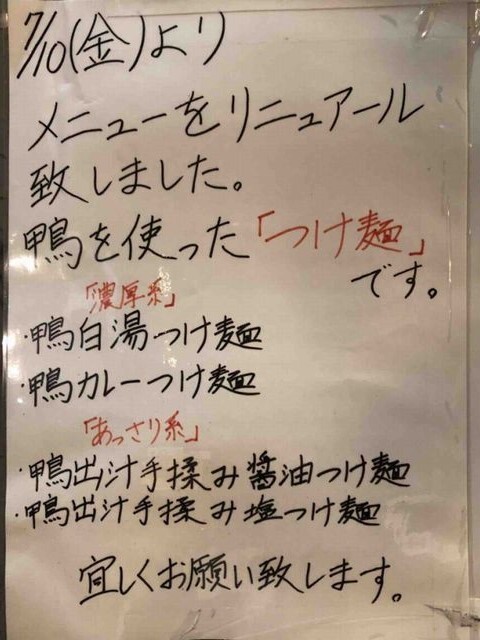 7/10(金)より
メニューをリニュアール
致しました。
鴨を使った「つけ麺」
です。
「濃厚系」
・鴨白湯つけ麺
・鴨カレーつけ麺
「あっさり系」
・鴨出汁手揉み醤油つけ麺
・鴨出汁手揉み塩つけ麺
宜しくお願い致します。